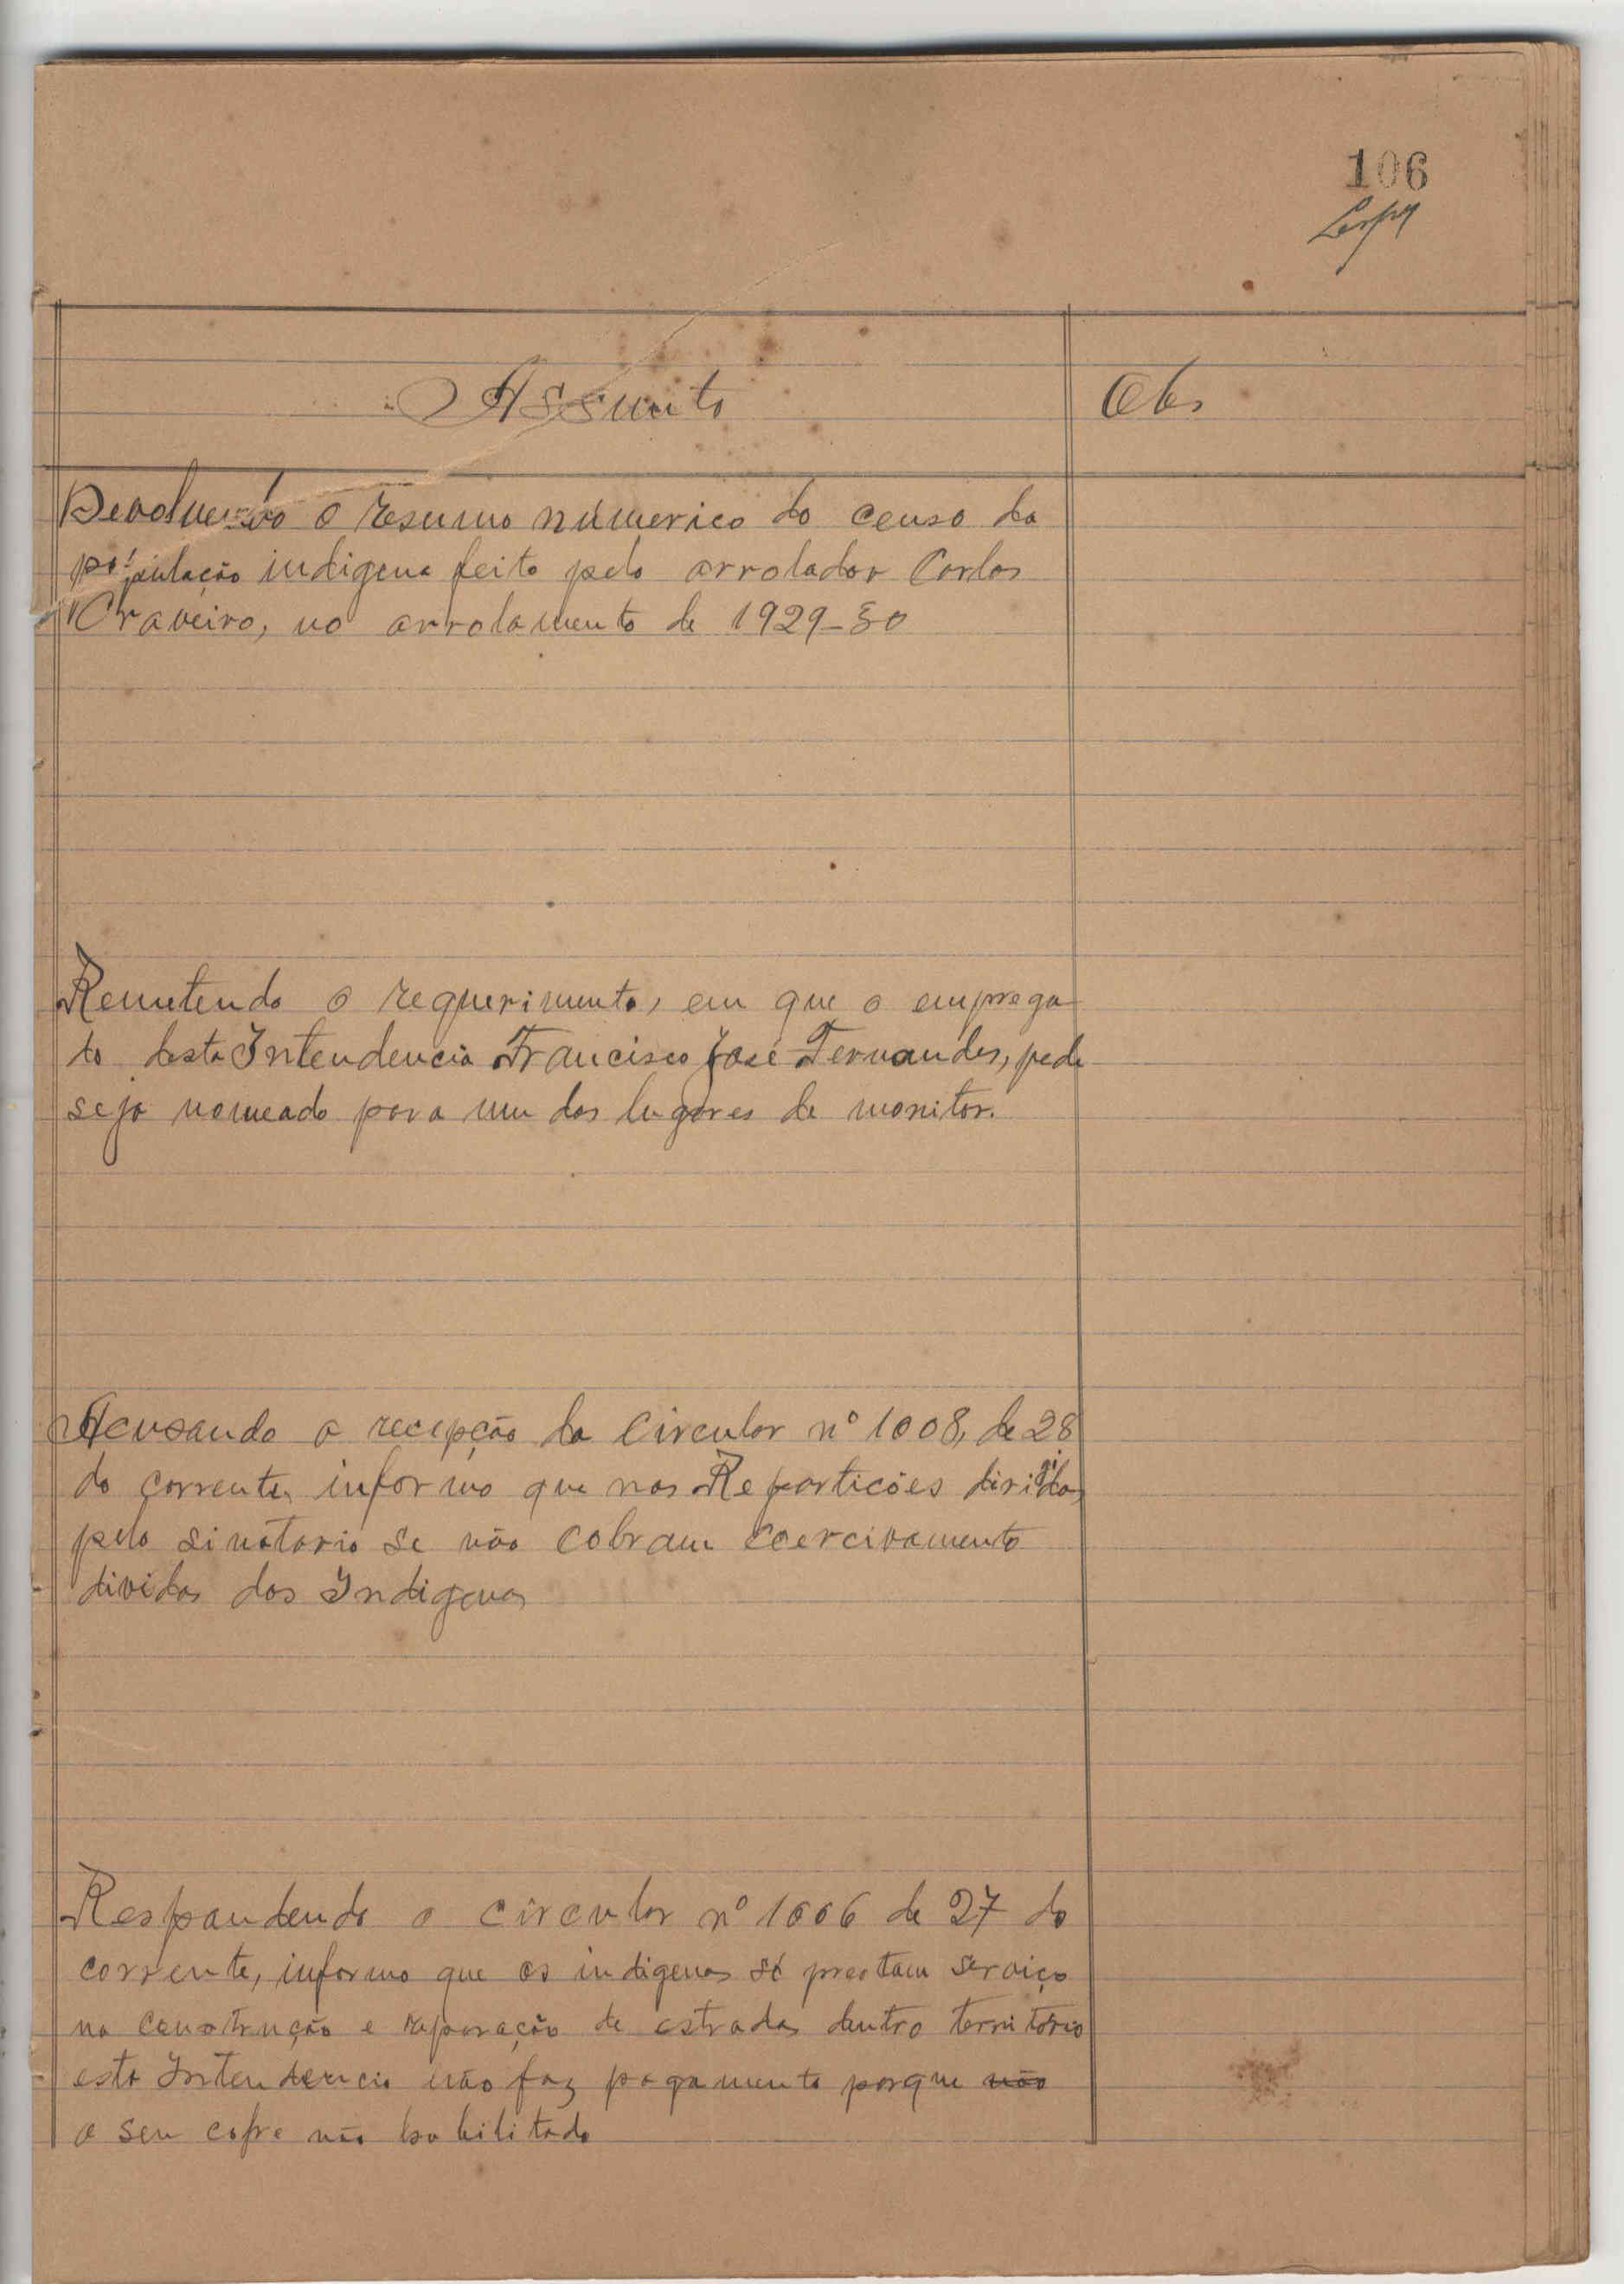 106
Assunto
Obs
Devolvendo o resumo númerico do censo da
população indigena feito pelo arrolador Carlos
Craveiro, no arrolamento de 1929-30
Remetendo o requerimento, em que o emprega-
do desta Intendencia Francisco José Fernandes, pede
seja nomeado para um dos lugares de monitor.
Acusando a recepção da Circular nº 1008, de 28
do corrente, informo que nas Reparticões dirigidas
pelo sinatario se não cobram coercivamente
dividas dos Indigenas
Respondendo a circular nº 1006 de 27 do
corrente, informo que os indigenas só prestam serviço
na construção e reparação de estradas dentro território
esta Intendencia não faz pagamento porque não
o seu cofre não habilitado